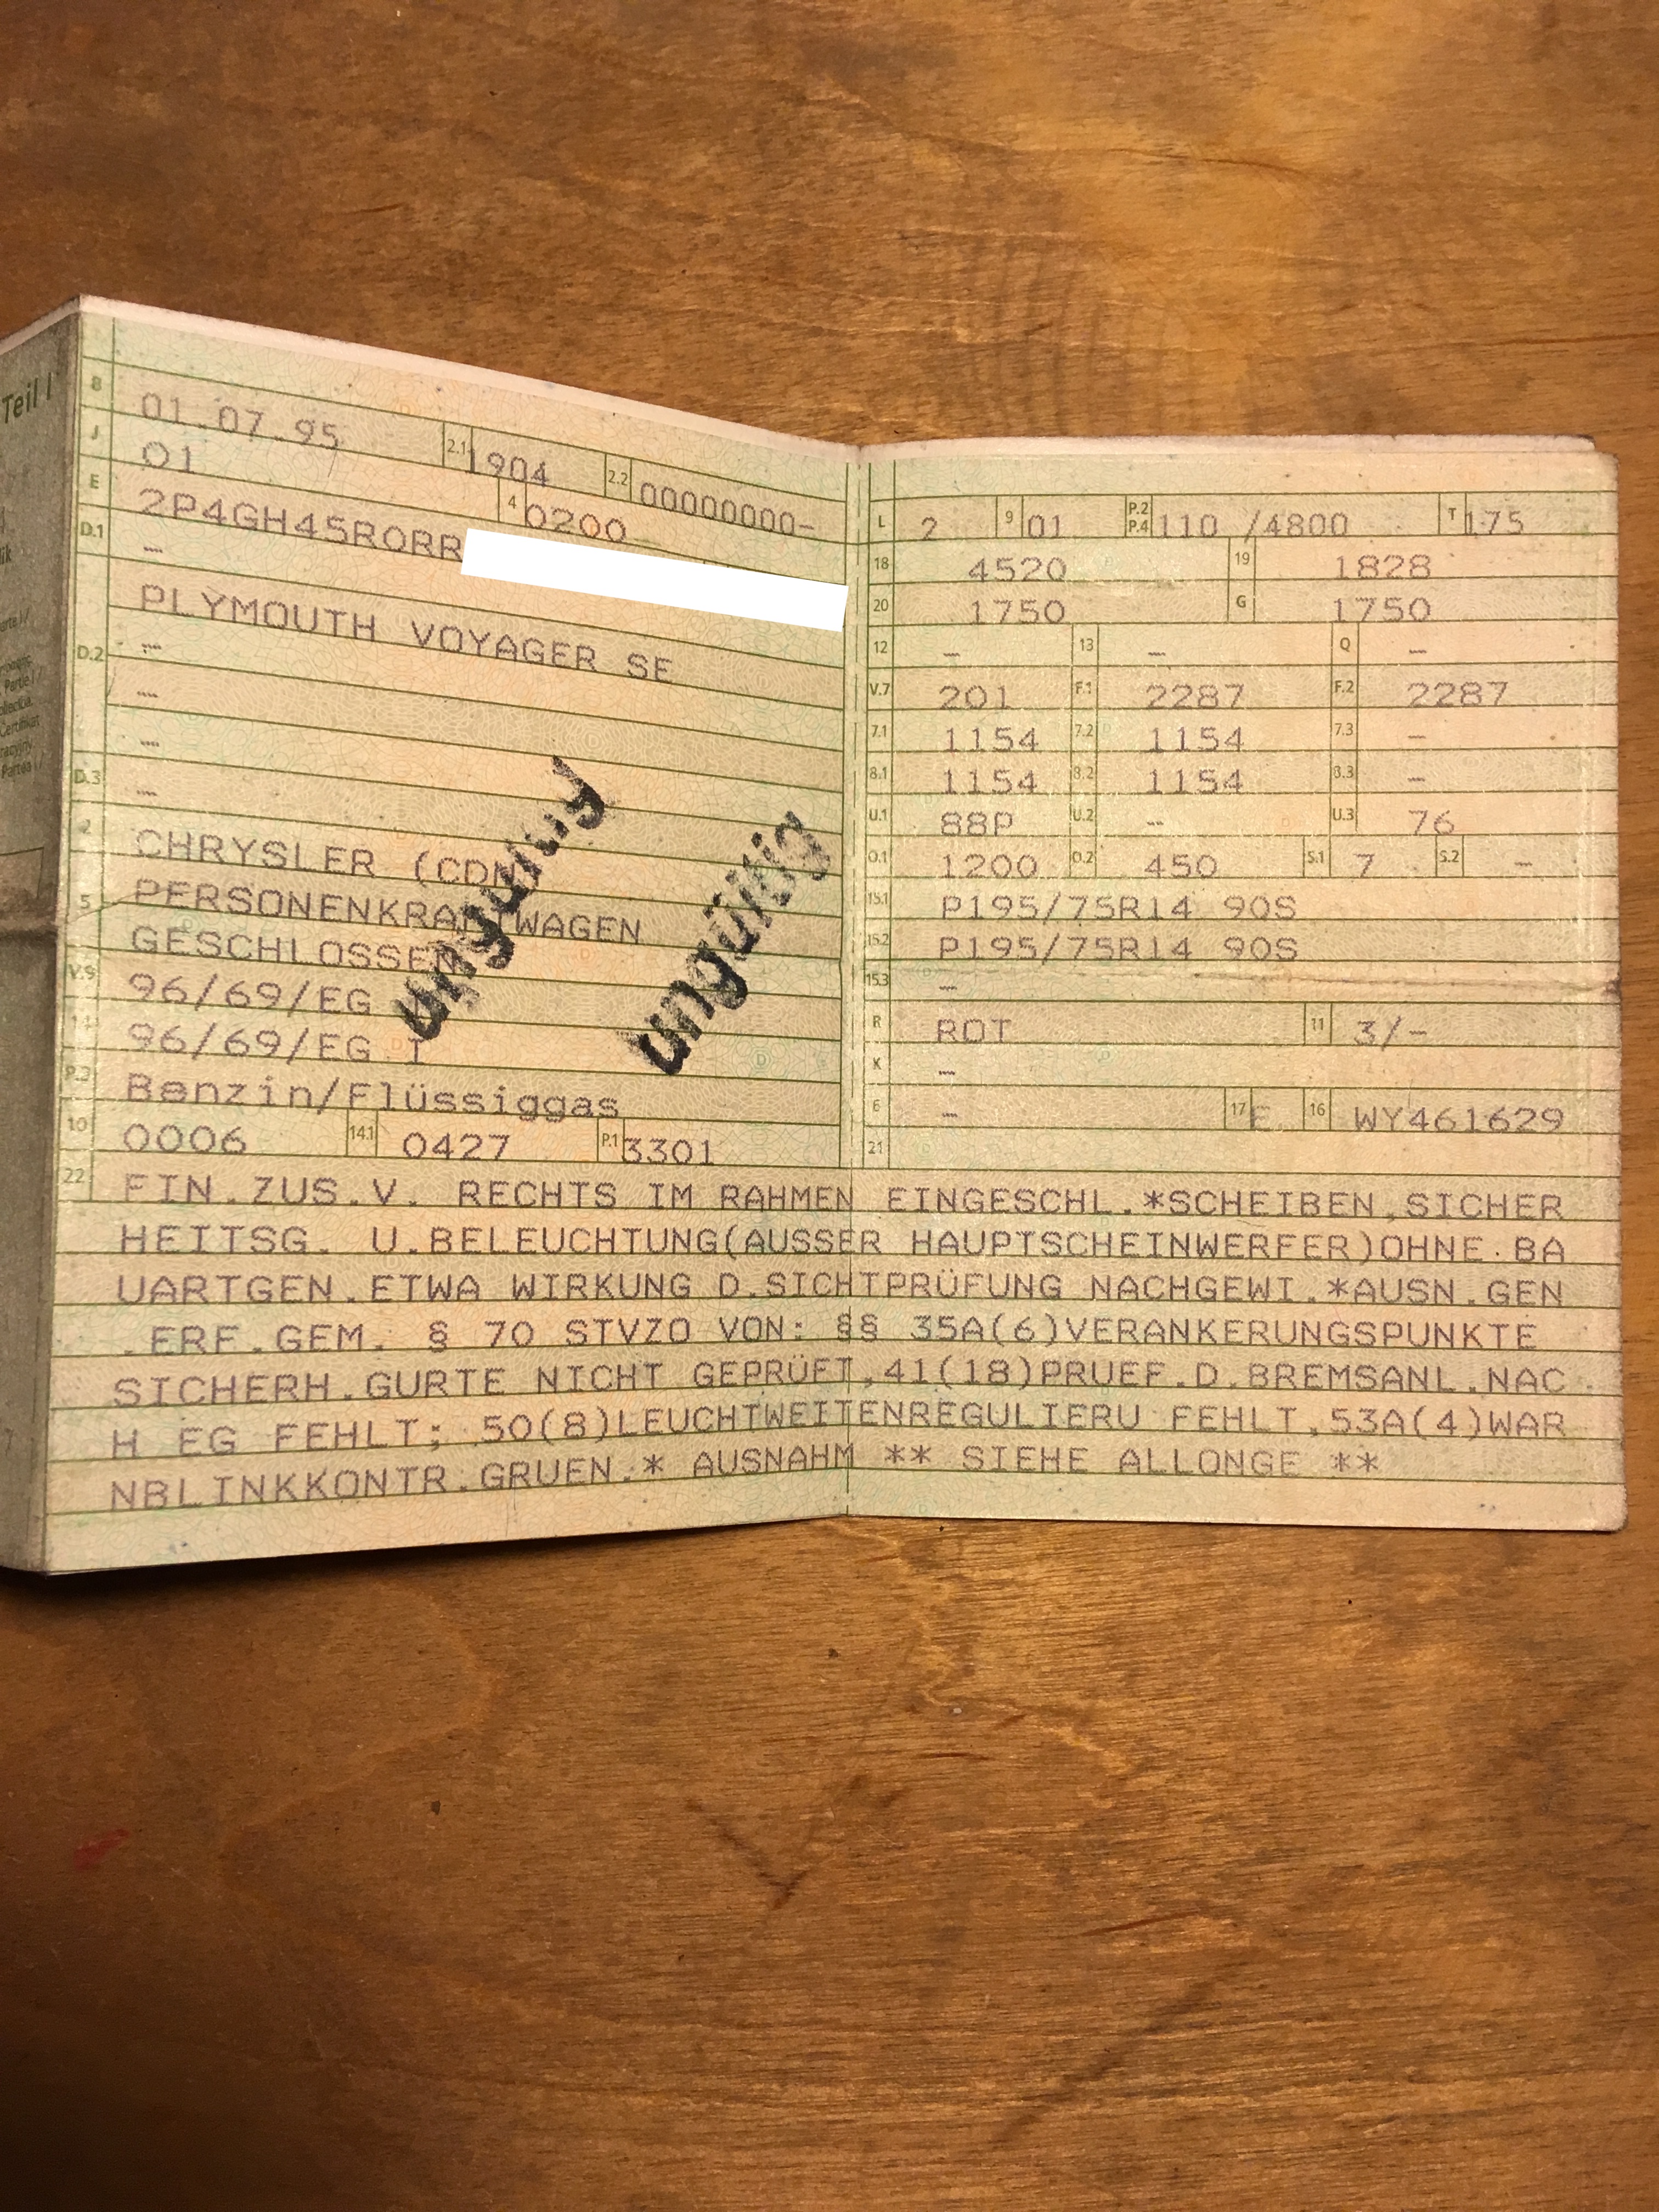 Teil I
B 01.07.95 2.1 1904 2.2 00000000-
J 01 4 0200
E 2P4GH45RORR
D.1 –
PLYMOUTH VOYAGER SE
D.2 –
–
–
D.3 –
2 CHRYSLER (CDN)
5 PERSONENKRAFTWAGEN
GESCHLOSSEN
V.9 96/69/EG
14 96/69/EG I
P.3 Benzin/Flüssiggas
10 0006 14.1 0427 P.1 3301
ungültig
ungültig
L 2 9 01 P.2 P.4 110 /4800 T 175
18 4520 19 1828
20 1750 G 1750
12 – 13 – Q –
V.7 201 F.1 2287 F.2 2287
7.1 1154 7.2 1154 7.3 –
8.1 1154 8.2 1154 8.3 –
U.1 88P U.2 – U.3 76
O.1 1200 O.2 450 S.1 7 S.2 –
15.1 P195/75R14 90S
15.2 P195/75R14 90S
15.3 –
R ROT 11 3/-
K –
6 – 17 E 16 WY461629
21
22 FIN.ZUS.V. RECHTS IM RAHMEN EINGESCHL.*SCHEIBEN,SICHER
HEITSG. U.BELEUCHTUNG(AUSSER HAUPTSCHEINWERFER)OHNE BA
UARTGEN.ETWA WIRKUNG D.SICHTPRÜFUNG NACHGEWI.*AUSN.GEN
.ERF.GEM. § 70 STVZO VON: §§ 35A(6)VERANKERUNGSPUNKTE
SICHERH.GURTE NICHT GEPRÜFT,41(18)PRUEF.D.BREMSANL.NAC
H EG FEHLT; 50(8)LEUCHTWEITENREGULIERU FEHLT,53A(4)WAR
NBLINKKONTR.GRUEN.* AUSNAHM ** SIEHE ALLONGE **